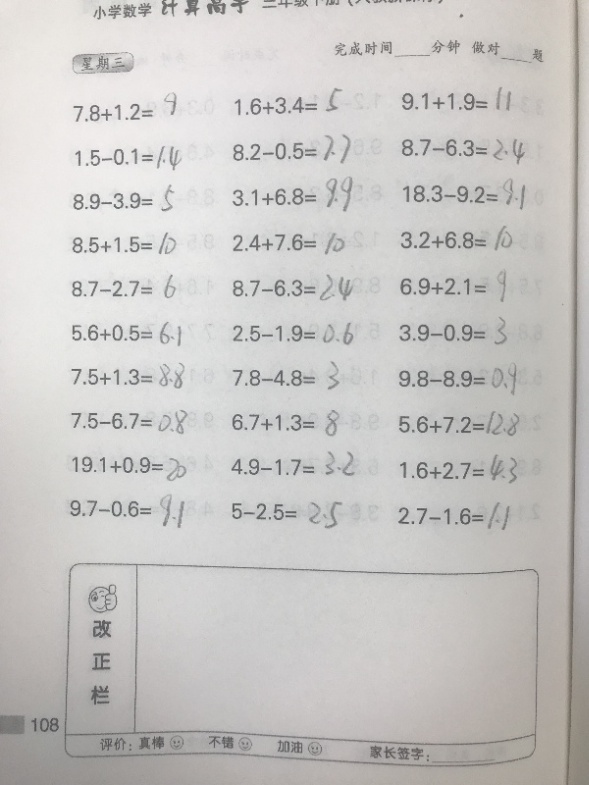 小学数学 计算高手 三年级下册
完成时间____分钟 做对____题
星期三
7.8+1.2=9 1.6+3.4=5 9.1+1.9=11
1.5-0.1=1.4 8.2-0.5=7.7 8.7-6.3=2.4
8.9-3.9=5 3.1+6.8=9.9 18.3-9.2=9.1
8.5+1.5=10 2.4+7.6=10 3.2+6.8=10
8.7-2.7=6 8.7-6.3=2.4 6.9+2.1=9
5.6+0.5=6.1 2.5-1.9=0.6 3.9-0.9=3
7.5+1.3=8.8 7.8-4.8=3 9.8-8.9=0.9
7.5-6.7=0.8 6.7+1.3=8 5.6+7.2=12.8
19.1+0.9=20 4.9-1.7=3.2 1.6+2.7=4.3
9.7-0.6=9.1 5-2.5=2.5 2.7-1.6=1.1
改正栏
108
评价：真棒 不错 加油 家长签字：